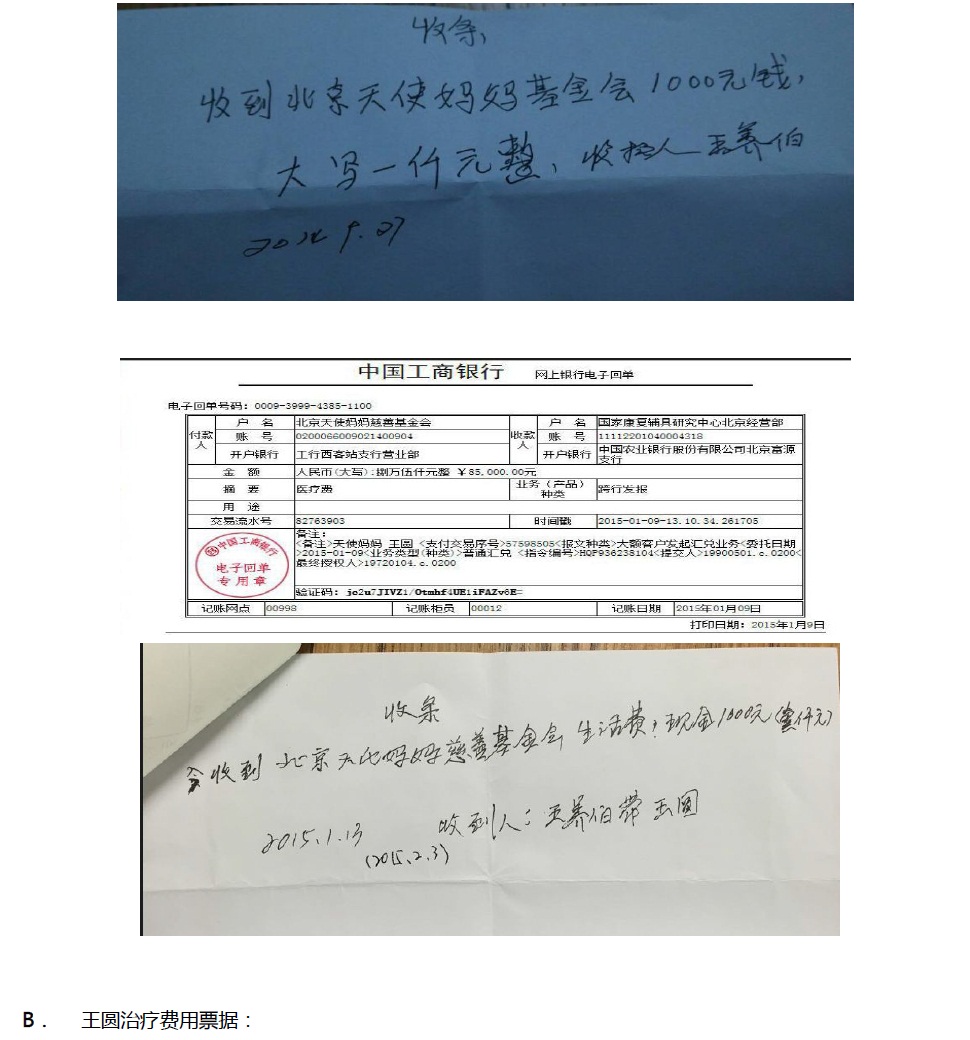 收条
收到北京天使妈妈基金会1000元钱,
大写一仟元整、收捐人王养伯
2014 9.27
中国工商银行 网上银行电子回单
电子回单号码: 0009-3999-4385-1100
付款人 户 名 北京天使妈妈慈善基金会 收款人 户 名 国家康复辅具研究中心北京经营部
账 号 0200066009021400904 账 号 11112201040004318
开户银行 工行西客站支行营业部 开户银行 中国农业银行股份有限公司北京富源支行
金 额 人民币(大写):捌万伍仟元整 ¥85,000.00元
摘 要 医疗费 业务(产品)种类 跨行发报
用 途
交易流水号 82763903 时间戳 2015-01-09-13.10.34.261705
备注:
<备注>天使妈妈 王圆 <支付交易序号>57598505<报文种类>大额客户发起汇兑业务<委托日期
>2015-01-09<业务类型(种类)>普通汇兑 <指令编号>HQP936238104<提交人>19900501.c.0200<
最终授权人>19720104.c.0200
中国工商银行
电子回单
专用章
验证码: jc2u7JIVZi/Otmhf4UEiiFAZv6E=
记账网点 00998 记账柜员 00012 记账日期 2015年01月09日
打印日期: 2015年1月9日
收条
收到 北京天使妈妈慈善基金会 生活费:现金1000元(壹仟元)
2015.1.13 收到人: 王养伯带王圆
(2015.2.3)
B. 王圆治疗费用票据: